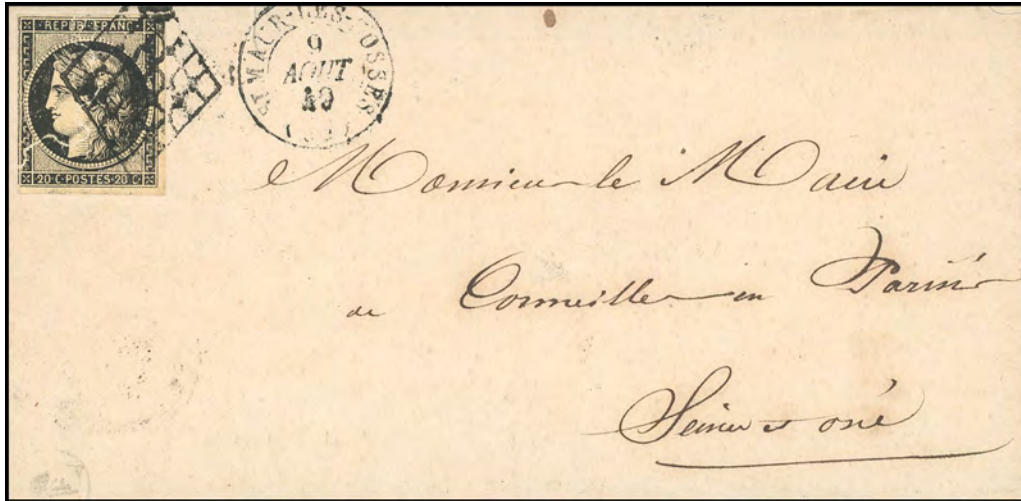 REPUB. FRANC.
20 C. POSTES. 20 C
ST MAUR-LES-FOSSES
9
AOUT
49
(60)
Monsieur le Maire
de Cormeilles en Parisis
Seine et oise